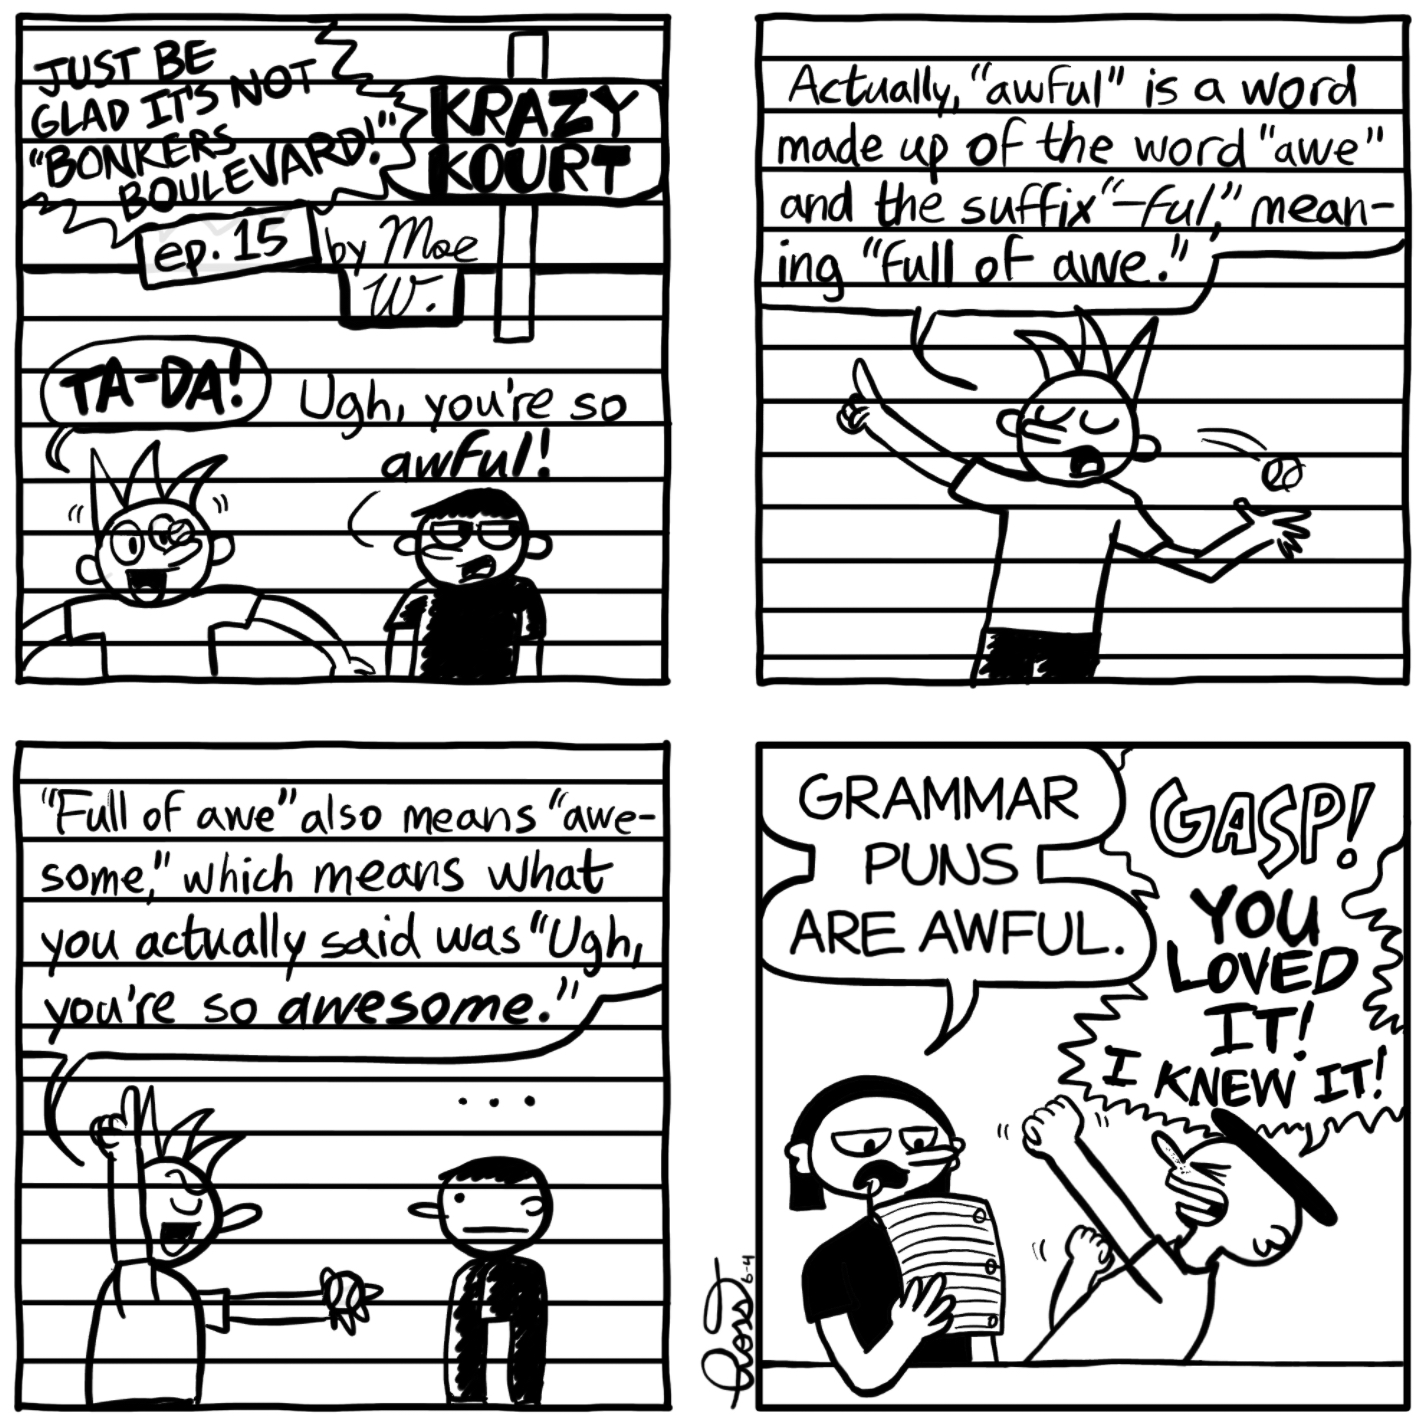 JUST BE
GLAD IT'S NOT
"BONKERS
BOULEVARD!"
KRAZY
KOURT
ep. 15
by Moe
W.
TA-DA!
Ugh, you're so
awful!
Actually, "awful" is a word
made up of the word "awe"
and the suffix "-ful," mean-
ing "full of awe."
"Full of awe" also means "awe-
some," which means what
you actually said was "Ugh,
you're so awesome."
...
GRAMMAR
PUNS
ARE AWFUL.
GASP!
YOU
LOVED
IT!
I KNEW IT!
Ross
6-4